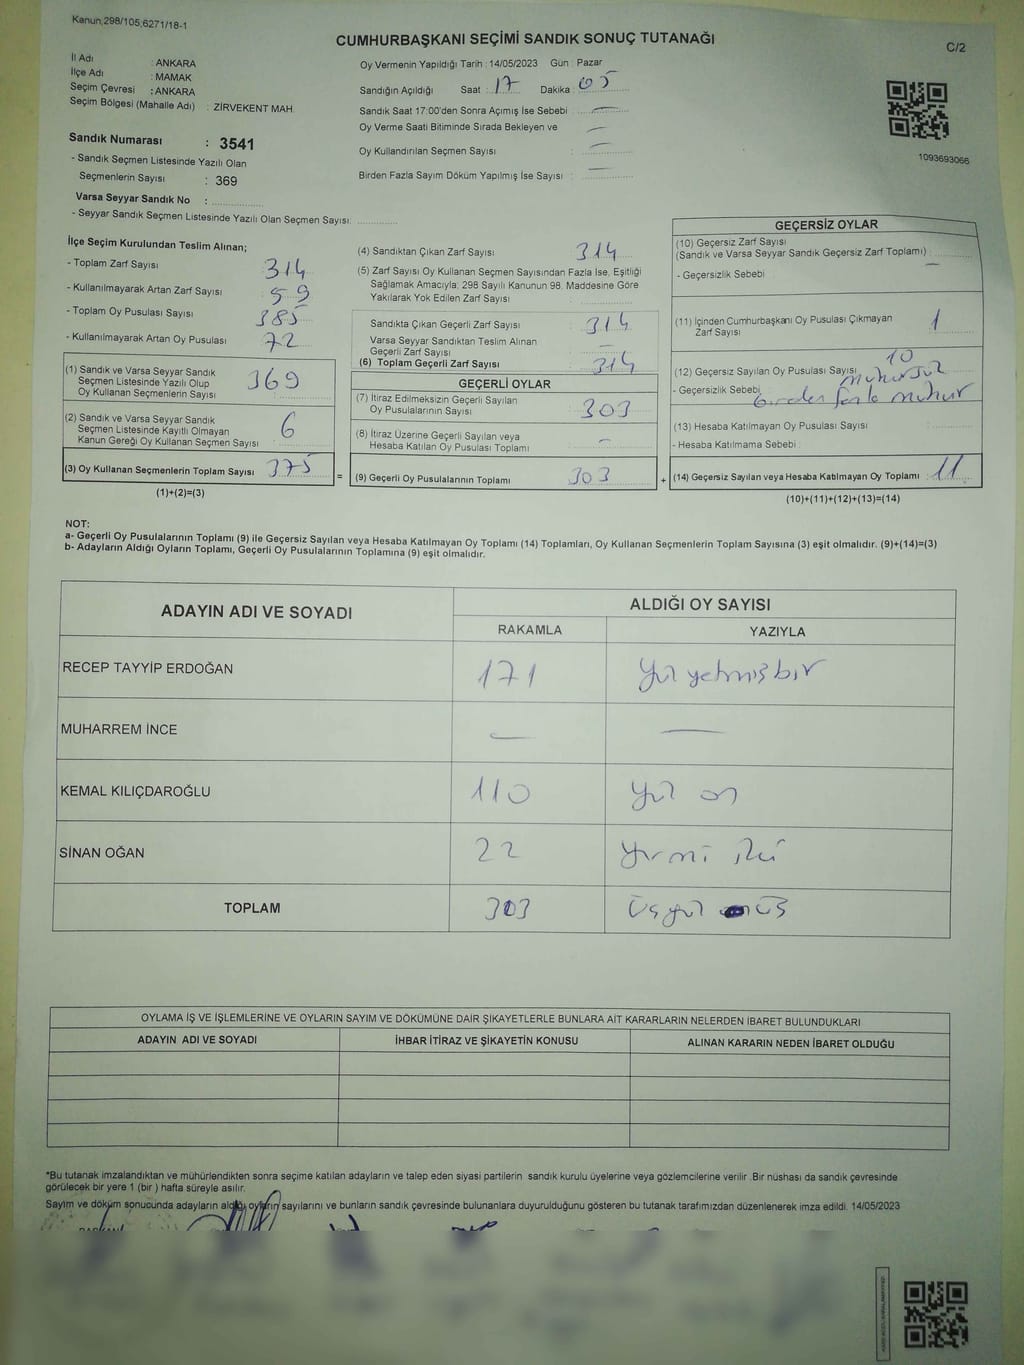 Kanun,298/105,6271/18-1
CUMHURBAŞKANI SEÇİMİ SANDIK SONUÇ TUTANAĞI
C/2
İl Adı : ANKARA
İlçe Adı : MAMAK
Seçim Çevresi : ANKARA
Seçim Bölgesi (Mahalle Adı) : ZİRVEKENT MAH.
Sandık Numarası : 3541
- Sandık Seçmen Listesinde Yazılı Olan
Seçmenlerin Sayısı : 369
Varsa Seyyar Sandık No :
- Seyyar Sandık Seçmen Listesinde Yazılı Olan Seçmen Sayısı:
Oy Vermenin Yapıldığı Tarih : 14/05/2023 Gün : Pazar
Sandığın Açıldığı Saat : 17 Dakika : 05
Sandık Saat 17:00'den Sonra Açımış İse Sebebi : —
Oy Verme Saati Bitiminde Sırada Bekleyen ve —
Oy Kullandırılan Seçmen Sayısı : —
Birden Fazla Sayım Döküm Yapılmış İse Sayısı : —
1093693066
İlçe Seçim Kurulundan Teslim Alınan;
- Toplam Zarf Sayısı 314
- Kullanılmayarak Artan Zarf Sayısı 59
- Toplam Oy Pusulası Sayısı 385
- Kullanılmayarak Artan Oy Pusulası 72
(1) Sandık ve Varsa Seyyar Sandık
Seçmen Listesinde Yazılı Olup
Oy Kullanan Seçmenlerin Sayısı : 369
(2) Sandık ve Varsa Seyyar Sandık
Seçmen Listesinde Kayıtlı Olmayan
Kanun Gereği Oy Kullanan Seçmen Sayısı : 6
(3) Oy Kullanan Seçmenlerin Toplam Sayısı : 375
(1)+(2)=(3)
(4) Sandıktan Çıkan Zarf Sayısı 314
(5) Zarf Sayısı Oy Kullanan Seçmen Sayısından Fazla İse, Eşitliği
Sağlamak Amacıyla; 298 Sayılı Kanunun 98. Maddesine Göre
Yakılarak Yok Edilen Zarf Sayısı :
Sandıkta Çıkan Geçerli Zarf Sayısı : 314
Varsa Seyyar Sandıktan Teslim Alınan
Geçerli Zarf Sayısı : —
(6) Toplam Geçerli Zarf Sayısı : 314
GEÇERLİ OYLAR
(7) İtiraz Edilmeksizin Geçerli Sayılan
Oy Pusulalarının Sayısı : 303
(8) İtiraz Üzerine Geçerli Sayılan veya
Hesaba Katılan Oy Pusulası Toplamı : —
= (9) Geçerli Oy Pusulalarının Toplamı : 303
GEÇERSİZ OYLAR
(10) Geçersiz Zarf Sayısı
(Sandık ve Varsa Seyyar Sandık Geçersiz Zarf Toplamı) : —
- Geçersizlik Sebebi :
(11) İçinden Cumhurbaşkanı Oy Pusulası Çıkmayan
Zarf Sayısı : 1
(12) Geçersiz Sayılan Oy Pusulası Sayısı : 10
- Geçersizlik Sebebi : mühürsüz
birden fazla mühür
(13) Hesaba Katılmayan Oy Pusulası Sayısı :
- Hesaba Katılmama Sebebi :
+ (14) Geçersiz Sayılan veya Hesaba Katılmayan Oy Toplamı : 11
(10)+(11)+(12)+(13)=(14)
NOT:
a- Geçerli Oy Pusulalarının Toplamı (9) ile Geçersiz Sayılan veya Hesaba Katılmayan Oy Toplamı (14) Toplamları, Oy Kullanan Seçmenlerin Toplam Sayısına (3) eşit olmalıdır. (9)+(14)=(3)
b- Adayların Aldığı Oyların Toplamı, Geçerli Oy Pusulalarının Toplamına (9) eşit olmalıdır.
ADAYIN ADI VE SOYADI
ALDIĞI OY SAYISI
RAKAMLA YAZIYLA
RECEP TAYYİP ERDOĞAN 171 yüz yetmiş bir
MUHARREM İNCE — —
KEMAL KILIÇDAROĞLU 110 yüz on
SİNAN OĞAN 22 yirmi iki
TOPLAM 303 üçyüz üç
OYLAMA İŞ VE İŞLEMLERİNE VE OYLARIN SAYIM VE DÖKÜMÜNE DAİR ŞİKAYETLERLE BUNLARA AİT KARARLARIN NELERDEN İBARET BULUNDUKLARI
ADAYIN ADI VE SOYADI İHBAR İTİRAZ VE ŞİKAYETİN KONUSU ALINAN KARARIN NEDEN İBARET OLDUĞU
*Bu tutanak imzalandıktan ve mühürlendikten sonra seçime katılan adayların ve talep eden siyasi partilerin sandık kurulu üyelerine veya gözlemcilerine verilir .Bir nüshası da sandık çevresinde
görülecek bir yere 1 (bir ) hafta süreyle asılır.
Sayım ve döküm sonucunda adayların aldığı oyların sayılarını ve bunların sandık çevresinde bulunanlara duyurulduğunu gösteren bu tutanak tarafımızdan düzenlenerek imza edildi. 14/05/2023